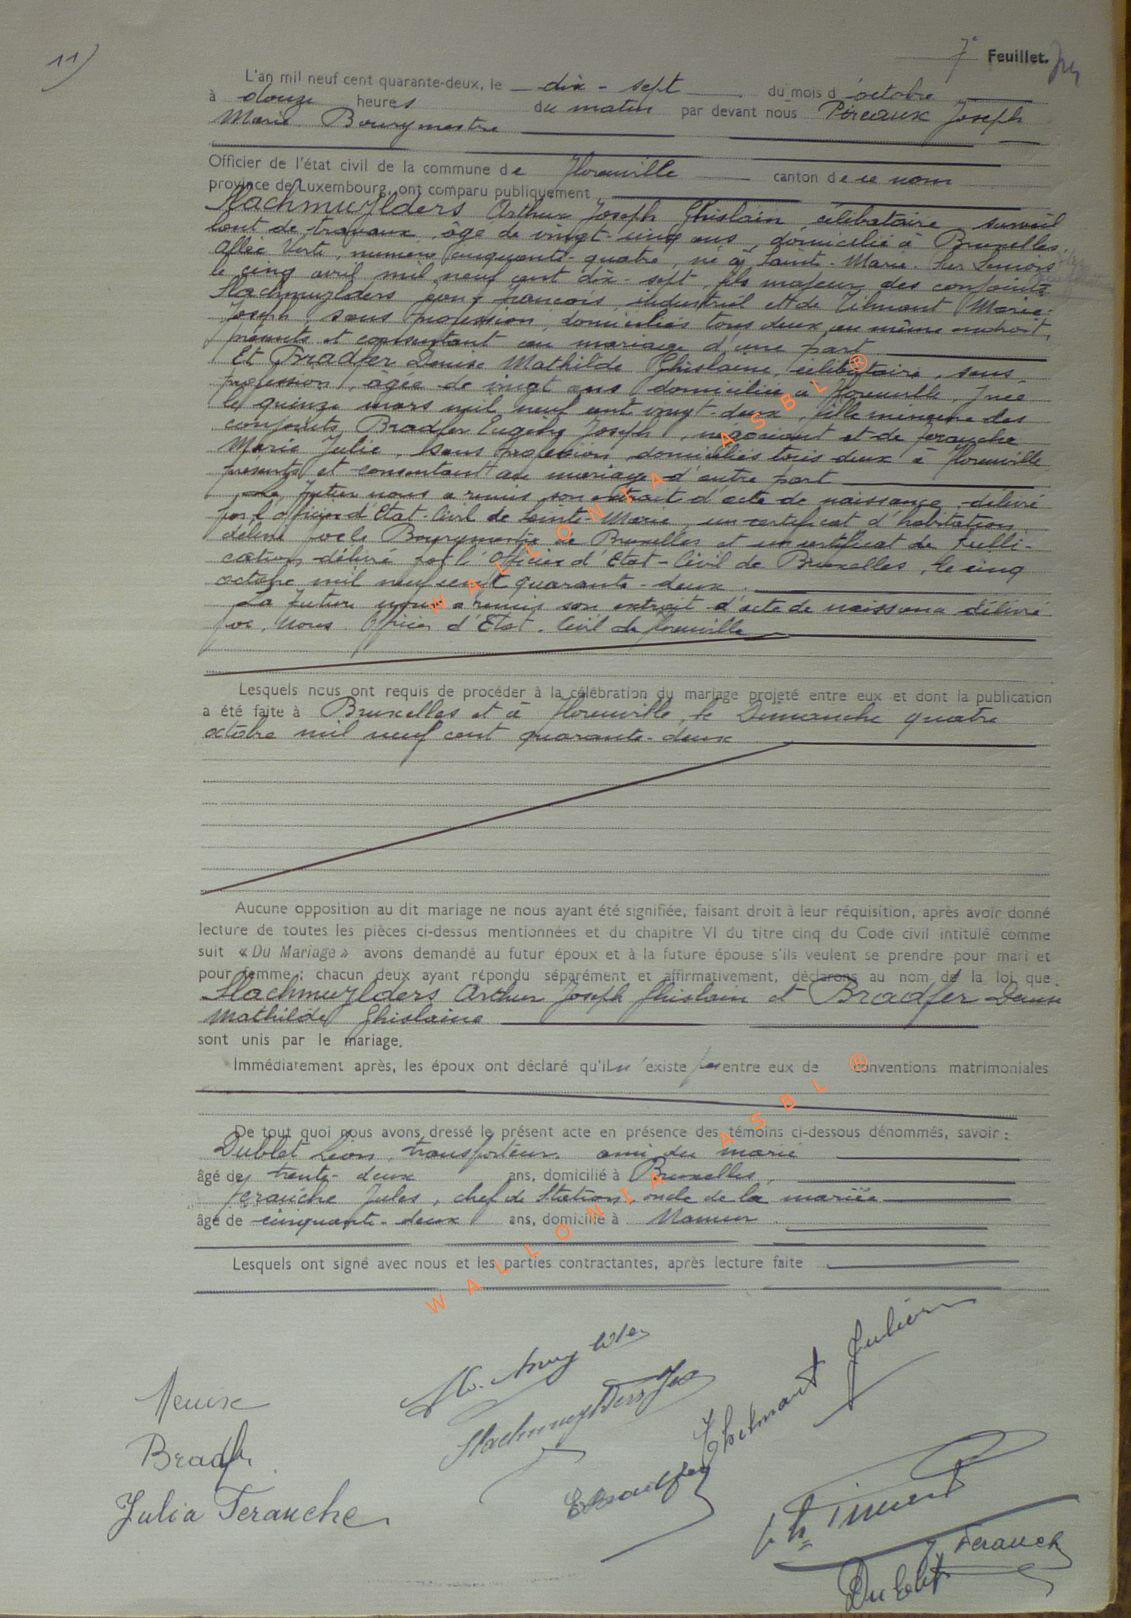 11)
7e Feuillet.
L'an mil neuf cent quarante-deux, le dix-sept du mois d'octobre
à douze heures du matin par devant nous Pireaux Joseph
Marie Bourgmestre
Officier de l'état civil de la commune de Florenville canton de ce nom
province de Luxembourg, ont comparu publiquement
Slachmuylders Arthur Joseph Ghislain célibataire surveil
lant de travaux, âgé de vingt-cinq ans, domicilié à Bruxelles,
Allée Verte, numéro cinquante-quatre, né à Sainte-Marie-sur-Semois
le cinq avril mil neuf cent dix-sept, fils majeur des conjoints
Slachmuylders François, industriel et de Tilmant Marie-
Joseph, sans profession, domiciliés tous deux au même endroit,
présents et consentant au mariage d'une part
Et Bradfer Denise Mathilde Ghislaine, célibataire, sans
profession, âgée de vingt ans domiciliée à Florenville, y née
le quinze mars mil neuf cent vingt-deux, fille mineure des
conjoints Bradfer Eugène Joseph, négociant et de Feranche
Marie Julie, sans profession domiciliés tous deux à Florenville
présents et consentant au mariage d'autre part
Le futur nous a remis son extrait d'acte de naissance délivré
par l'officier d'Etat-Civil de Sainte-Marie, un certificat d'habitation
délivré par le Bourgmestre de Bruxelles et un certificat de publi-
cation délivré par l'Officier d'Etat-Civil de Bruxelles, le cinq
octobre mil neuf cent quarante-deux.
La future nous a remis son extrait d'acte de naissance délivré
par Nous Officier d'Etat-Civil de Florenville
Lesquels nous ont requis de procéder à la célébration du mariage projeté entre eux et dont la publication
a été faite à Bruxelles et à Florenville, le Dimanche quatre
octobre mil neuf cent quarante-deux
Aucune opposition au dit mariage ne nous ayant été signifiée, faisant droit à leur réquisition, après avoir donné
lecture de toutes les pièces ci-dessus mentionnées et du chapitre VI du titre cinq du Code civil intitulé comme
suit «Du Mariage» avons demandé au futur époux et à la future épouse s'ils veulent se prendre pour mari et
pour femme; chacun deux ayant répondu séparément et affirmativement, déclarons au nom de la loi que
Slachmuylders Arthur Joseph Ghislain et Bradfer Denise
Mathilde Ghislaine
sont unis par le mariage.
Immédiatement après, les époux ont déclaré qu'il n'existe pas entre eux de conventions matrimoniales
De tout quoi nous avons dressé le présent acte en présence des témoins ci-dessous dénommés, savoir:
Dublet Léon, transporteur, ami du marié
âgé de trente-deux ans, domicilié à Bruxelles.
Feranche Jules, chef de Station, oncle de la mariée
âgé de cinquante-deux ans, domicilié à Namur.
Lesquels ont signé avec nous et les parties contractantes, après lecture faite
Bradfer
Julia Feranche
Slachmuylders
EBradfer
Feranche
Dublet
WALLONIA ASBL ®
WALLONIA ASBL ®